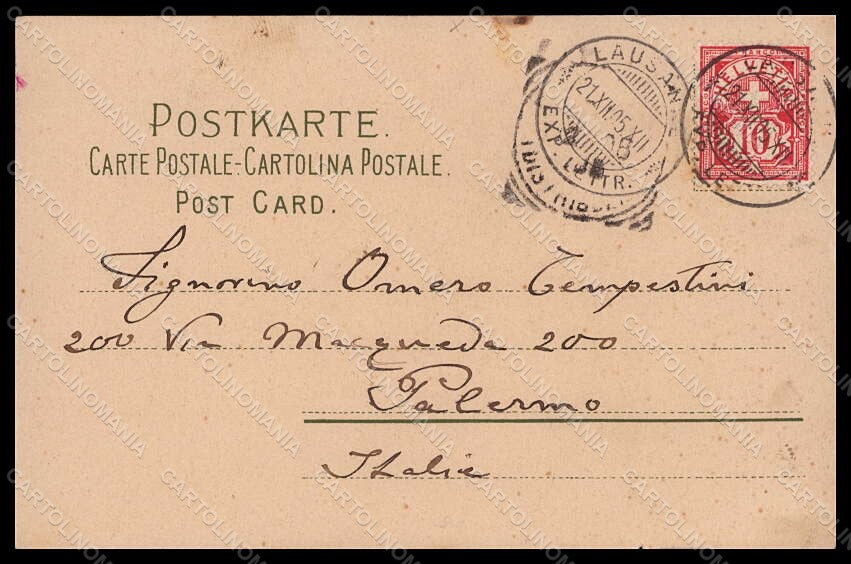 POSTKARTE.
CARTE POSTALE-CARTOLINA POSTALE.
POST CARD.
LAUSANNE
21.XII.05.XII
EXP. LETTR.
FRANCO
HELVETIA
10
Signorino Omero Tempestini
200 Via Macqueda 200
Palermo
Italia
CARTOLINOMANIA